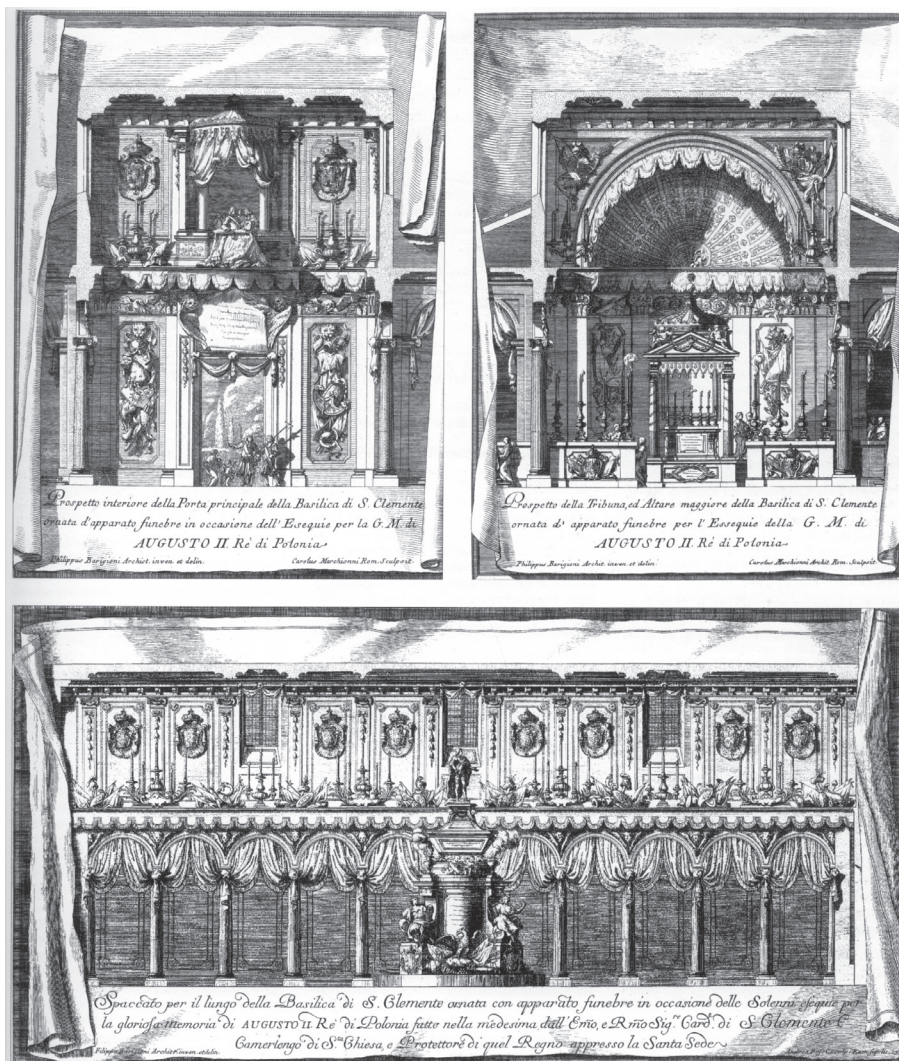 Prospetto interiore della Porta principale della Basilica di S. Clemente
ornata d'apparato funebre in occasione dell'Essequie per la G. M. di
AUGUSTO II. Rè di Polonia
Philippus Barigioni Archit. inven. et delin. Carolus Marchionni Rom. Sculpsit.
Prospetto della Tribuna, ed Altare maggiore della Basilica di S. Clemente
ornata d'apparato funebre per l'Essequie della G. M. di
AUGUSTO II. Rè di Polonia
Philippus Barigioni Archit. inven. et delin. Carolus Marchionni Archit. Rom. Sculpsit.
Spaccato per il lungo della Basilica di S. Clemente ornata con apparato funebre in occasione delle Solenni esequie per
la gloriosa memoria di AUGUSTO II Rè di Polonia fatte nella medesima dall'Emo, e Rmo Sigr. Card. di S. Clemente
Camerlengo di Sta Chiesa, e Protettore di quel Regno appresso la Santa Sede
Filippo Barigioni Architet. inven. et delin.